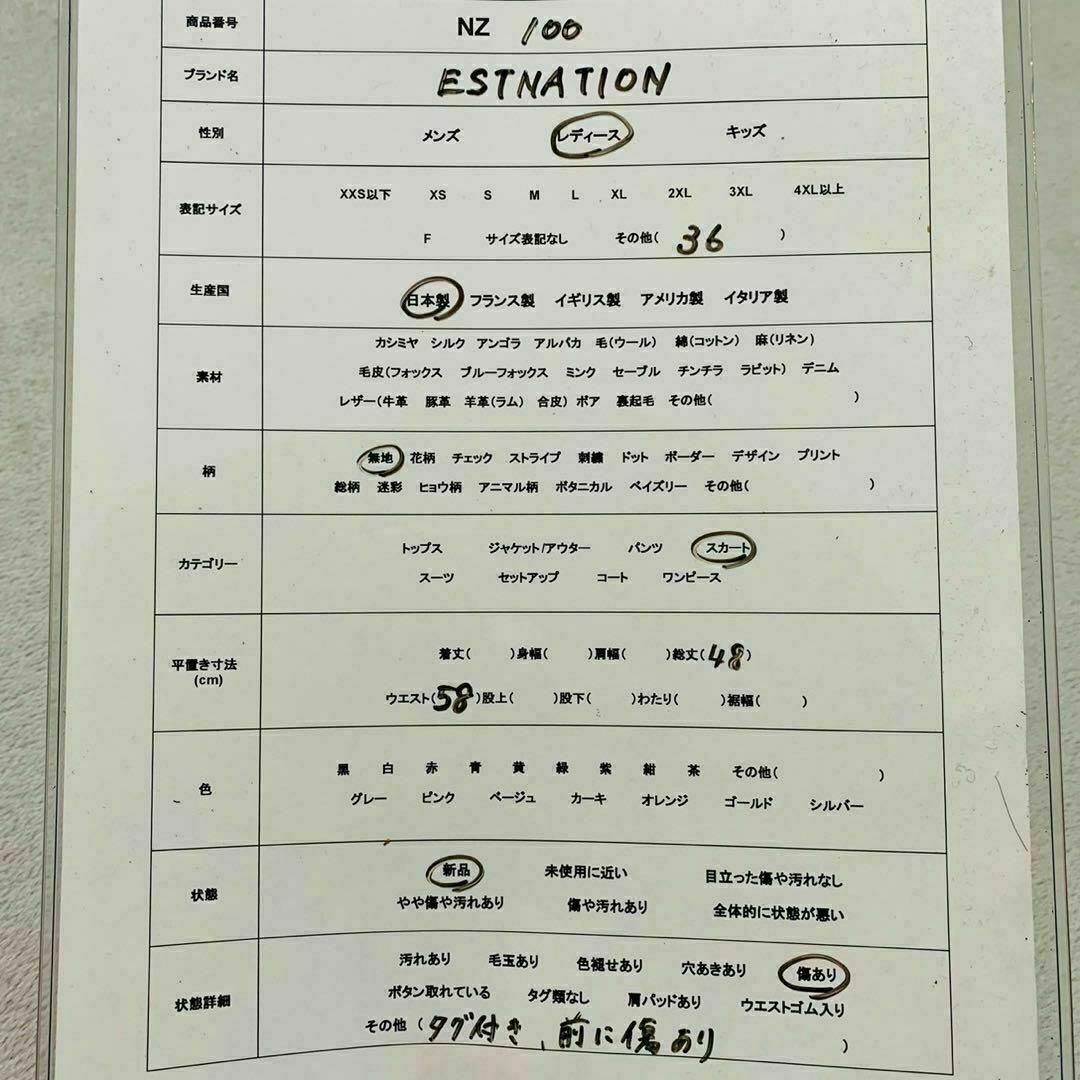 商品番号 NZ 100
ブランド名 ESTNATION
性別 メンズ レディース キッズ
表記サイズ XXS以下 XS S M L XL 2XL 3XL 4XL以上
F サイズ表記なし その他( 36 )
生産国 日本製 フランス製 イギリス製 アメリカ製 イタリア製
素材 カシミヤ シルク アンゴラ アルパカ 毛(ウール) 綿(コットン) 麻(リネン)
毛皮(フォックス ブルーフォックス ミンク セーブル チンチラ ラビット) デニム
レザー(牛革 豚革 羊革(ラム) 合皮) ボア 裏起毛 その他( )
柄 無地 花柄 チェック ストライプ 刺繍 ドット ボーダー デザイン プリント
総柄 迷彩 ヒョウ柄 アニマル柄 ボタニカル ペイズリー その他( )
カテゴリー トップス ジャケット/アウター パンツ スカート
スーツ セットアップ コート ワンピース
平置き寸法 (cm) 着丈( )身幅( )肩幅( )総丈(48)
ウエスト(58)股上( )股下( )わたり( )裾幅( )
色 黒 白 赤 青 黄 緑 紫 紺 茶 その他( )
グレー ピンク ベージュ カーキ オレンジ ゴールド シルバー
状態 新品 未使用に近い 目立った傷や汚れなし
やや傷や汚れあり 傷や汚れあり 全体的に状態が悪い
状態詳細 汚れあり 毛玉あり 色褪せあり 穴あきあり 傷あり
ボタン取れている タグ類なし 肩パッドあり ウエストゴム入り
その他 (タグ付き、前に傷あり )